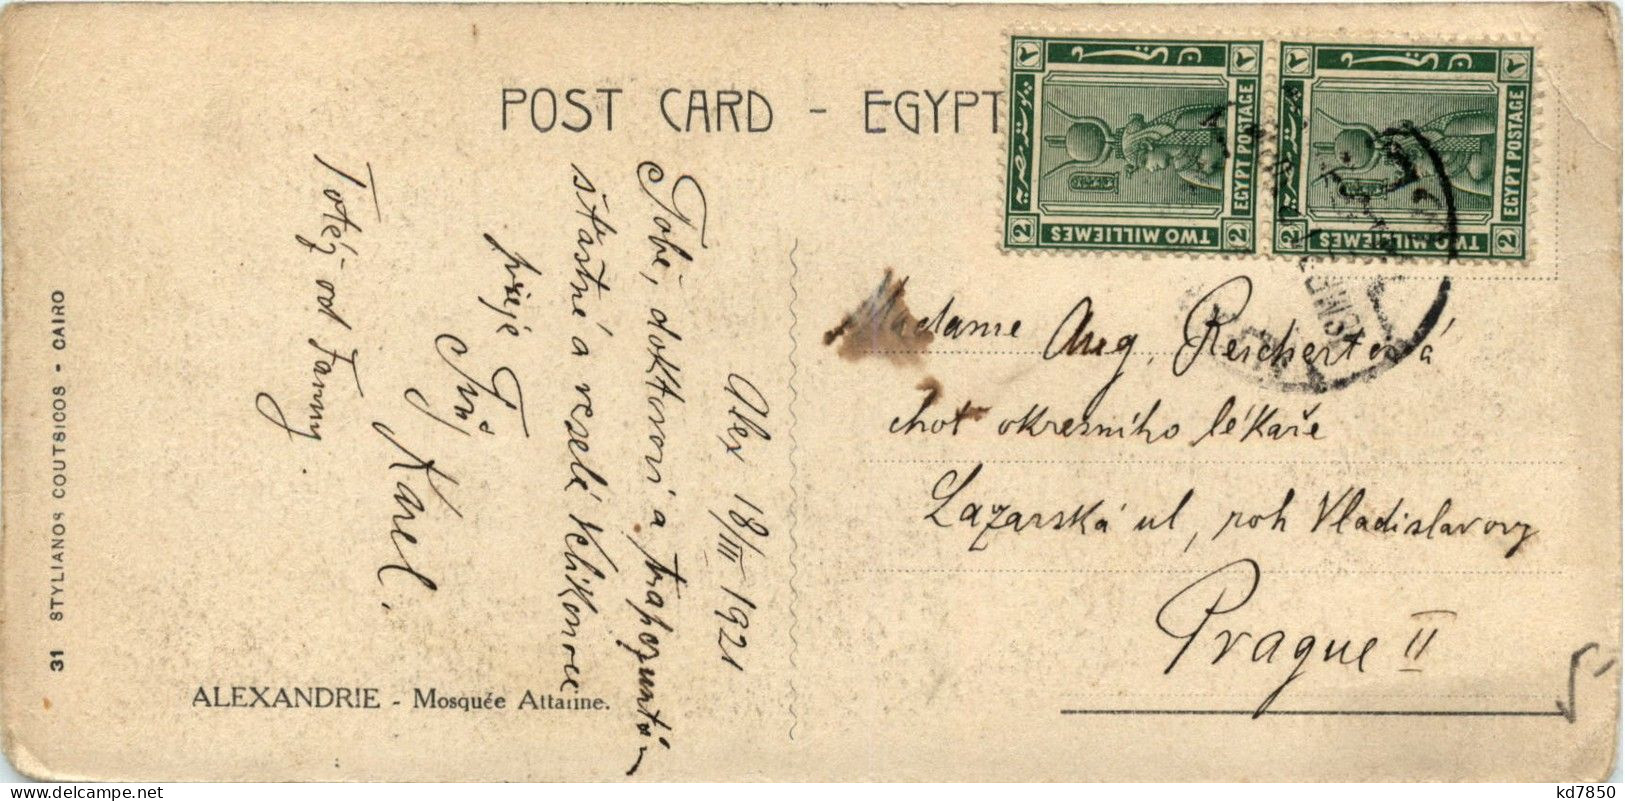 POST CARD - EGYPT
Alex 18/III 1921
Tobě, doktorovi a
šťastné a veselé Velikonoce
přeje
Tvůj
Karel.
Totéž od Fanny.
ALEXANDRIE - Mosquée Attarine.
31 STYLIANOS COUTSICOS - CAIRO
EGYPT POSTAGE
TWO MILLIEMES
2
2
٢
EGYPT POSTAGE
TWO MILLIEMES
2
2
٢
Madame Aug. Reichertová
chot okresního lékaře
Lazarská ul, roh Vladislavovy
Prague II
kd7850